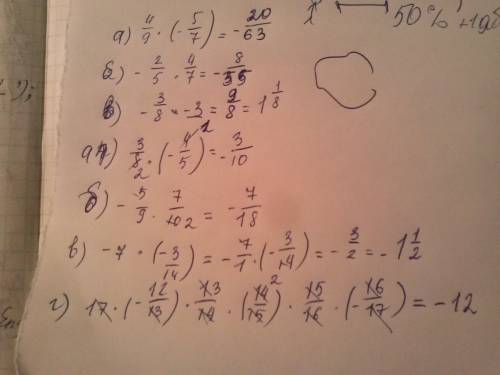 50%
а) 4/9 · (-5/7) = -20/63
б) -2/5 · 4/7 = -8/35
в) -3/8 · -3 = 9/8 = 1 1/8
а) 3/8 · (-4/5) = -3/10
2
б) -5/9 · 7/10 2 = -7/18
в) -7 · (-3/14) = -7/1 · (-3/14) = -3/2 = -1 1/2
г) 17 · (-12/13) · 13/14 · (14/15) 2 · 15/16 · (-16/17) = -12